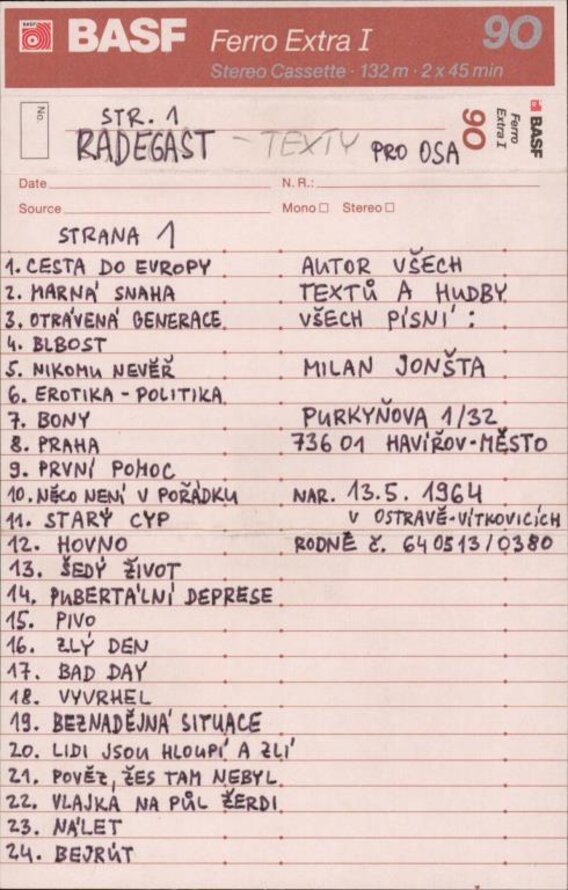 BASF Ferro Extra I 90
Stereo Cassette · 132 m · 2 x 45 min
No.
STR. 1
RADEGAST - TEXTY PRO OSA
90
Ferro Extra I
BASF
Date N. R.:
Source Mono Stereo
STRANA 1
1. CESTA DO EVROPY
2. MARNÁ SNAHA
3. OTRÁVENÁ GENERACE
4. BLBOST
5. NIKOMU NEVĚŘ
6. EROTIKA - POLITIKA
7. BONY
8. PRAHA
9. PRVNÍ POMOC
10. NĚCO NENÍ V POŘÁDKU
11. STARÝ CYP
12. HOVNO
13. ŠEDÝ ŽIVOT
14. PUBERTÁLNÍ DEPRESE
15. PIVO
16. ZLÝ DEN
17. BAD DAY
18. VYVRHEL
19. BEZNADĚJNÁ SITUACE
20. LIDI JSOU HLOUPÍ A ZLÍ
21. POVĚZ, ŽES TAM NEBYL
22. VLAJKA NA PŮL ŽERDI
23. NÁLET
24. BEJRÚT
AUTOR VŠECH
TEXTŮ A HUDBY
VŠECH PÍSNÍ :
MILAN JONŠTA
PURKYŇOVA 1/32
736 01 HAVÍŘOV-MĚSTO
NAR. 13.5. 1964
V OSTRAVĚ-VÍTKOVICÍCH
RODNÉ Č. 640513/0380